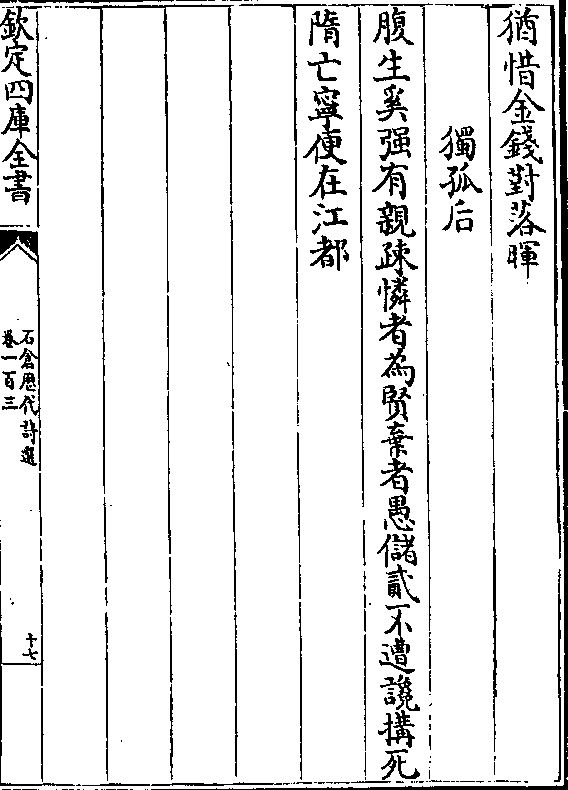 猶惜金錢對落暉
獨孤后
腹生奚强有親疎憐者為賢棄者愚儲貳不遭讒構死
隋亡寧便在江都
欽定四庫全書
石倉歴代詩選
卷一百三
十七